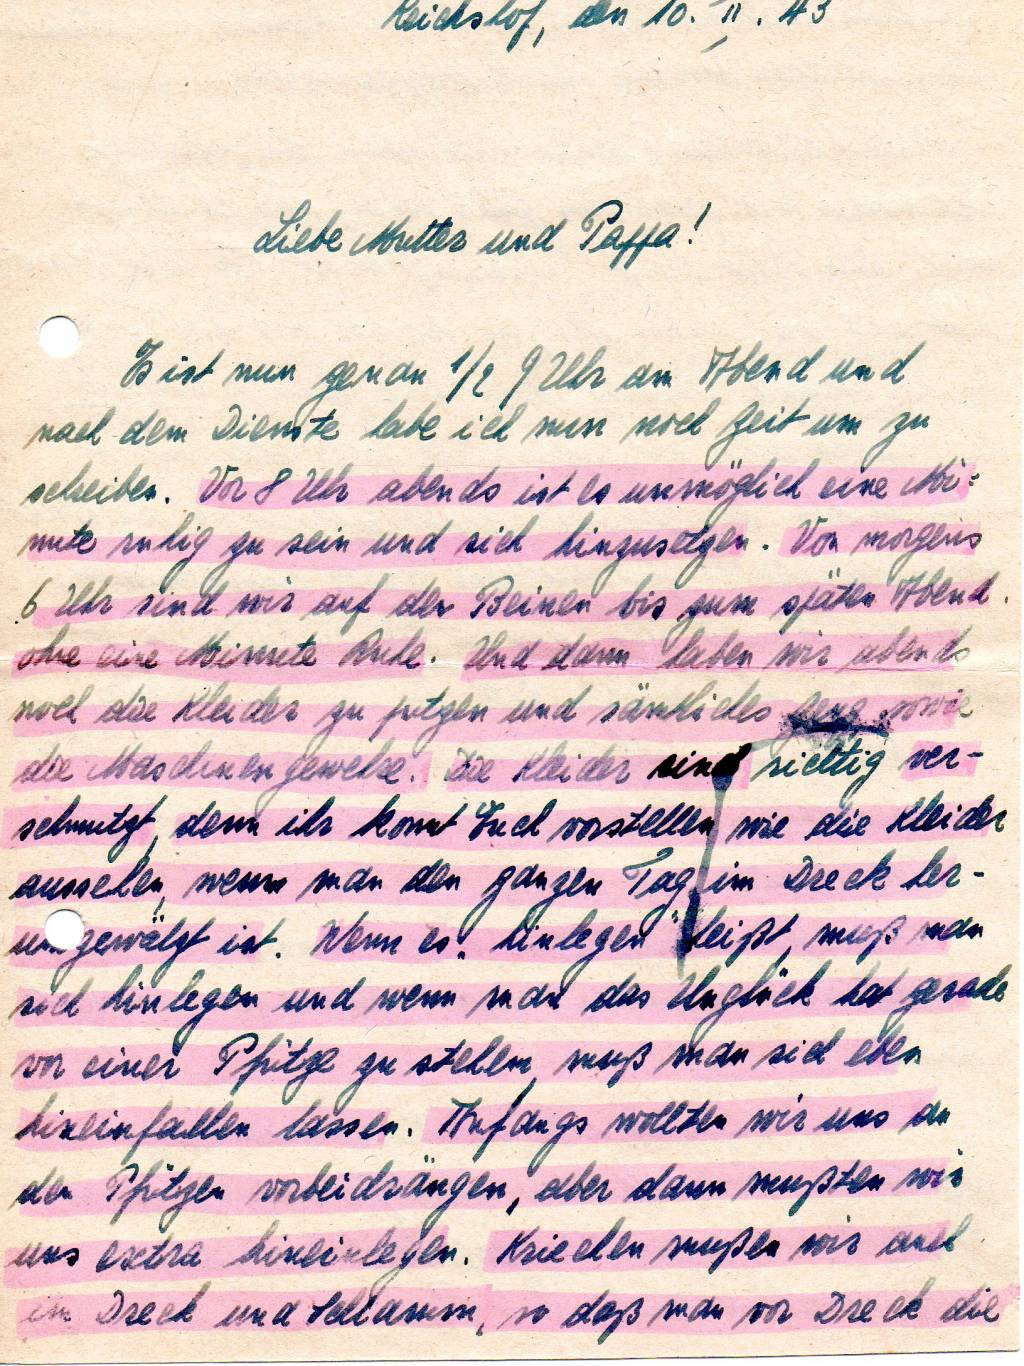 Reichshof, den 10. II. 43
Liebe Mutter und Pappa!
Es ist nun genau 1/2 9 Uhr am Abend und
nach dem Dienste habe ich nun noch Zeit um zu
schreiben. Vor 8 Uhr abends ist es unmöglich eine Mi-
nute ruhig zu sein und sich hinzusetzen. Von morgens
6 Uhr sind wir auf den Beinen bis zum späten Abend
ohne eine Minute Ruhe. Und dann haben wir abends
noch die Kleider zu putzen und sämtliches Zeug sowie
die Maschinengewehre. Die Kleider sind richtig ver-
schmutzt, denn ihr konnt Euch vorstellen wie die Kleider
aussehen, wenn man den ganzen Tag im Dreck her-
umgewälzt ist. Wenn es "hinlegen" heißt, muß man
sich hinlegen und wenn man das Unglück hat gerade
vor einer Pfütze zu stehen, muß man sich eben
hineinfallen lassen. Anfangs wollten wir uns an
den Pfützen vorbeidrängen, aber dann mußten wir
uns extra hineinlegen. Kriechen mußen wir auch
im Dreck und Schlamm, so daß man vor Dreck die